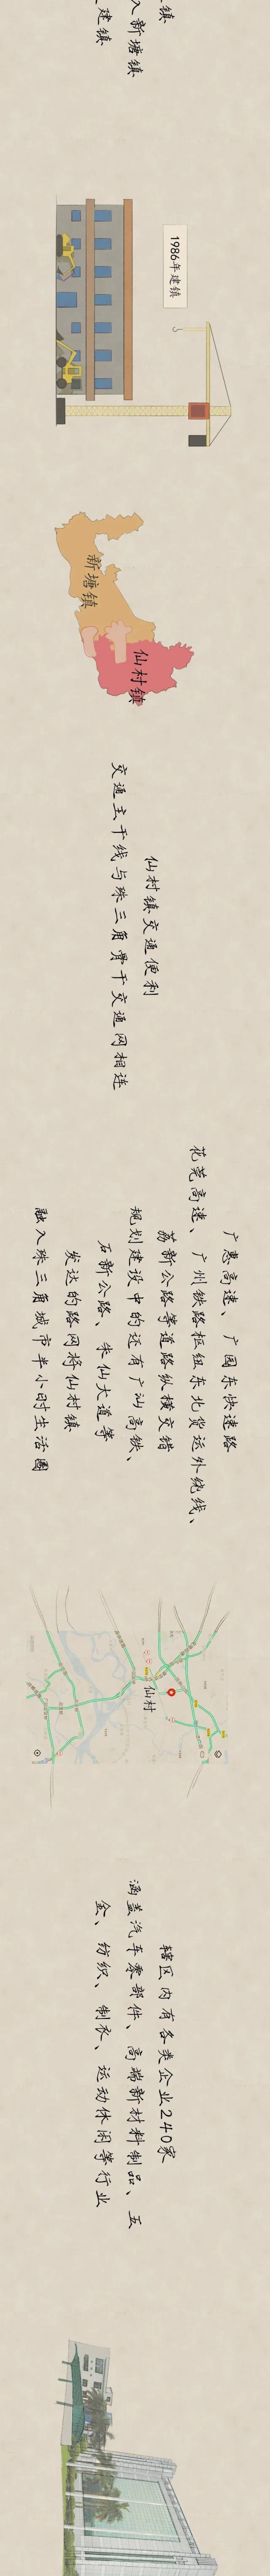 镇
入新塘镇
建镇
1986年建镇
新塘镇
仙村镇
仙村镇交通便利
交通主干线与珠三角骨干交通网相连
广惠高速、广园东快速路
花莞高速、广州铁路枢纽东北货运外绕线、
荔新公路等道路纵横交错
规划建设中的还有广汕高铁、
石新公路、朱仙大道等
发达的路网将仙村镇
融入珠三角城市半小时生活圈
仙村
辖区内有各类企业240家
涵盖汽车零部件、高端新材料制品、五
金、纺织、制衣、运动休闲等行业